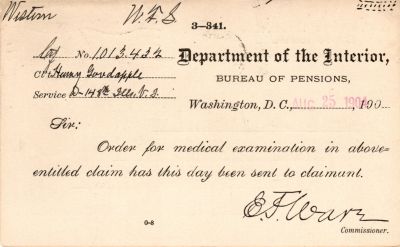 Western W. F. S
3—341.
No. 1013.432
Department of the Interior,
Cl't Henry Goodapple
BUREAU OF PENSIONS,
Service D-148th Ills. V. I.
Washington, D. C., AUG 25 190
Sir:
Order for medical examination in above-
entitled claim has this day been sent to claimant.
E. F. Ware
Commissioner.
0-8